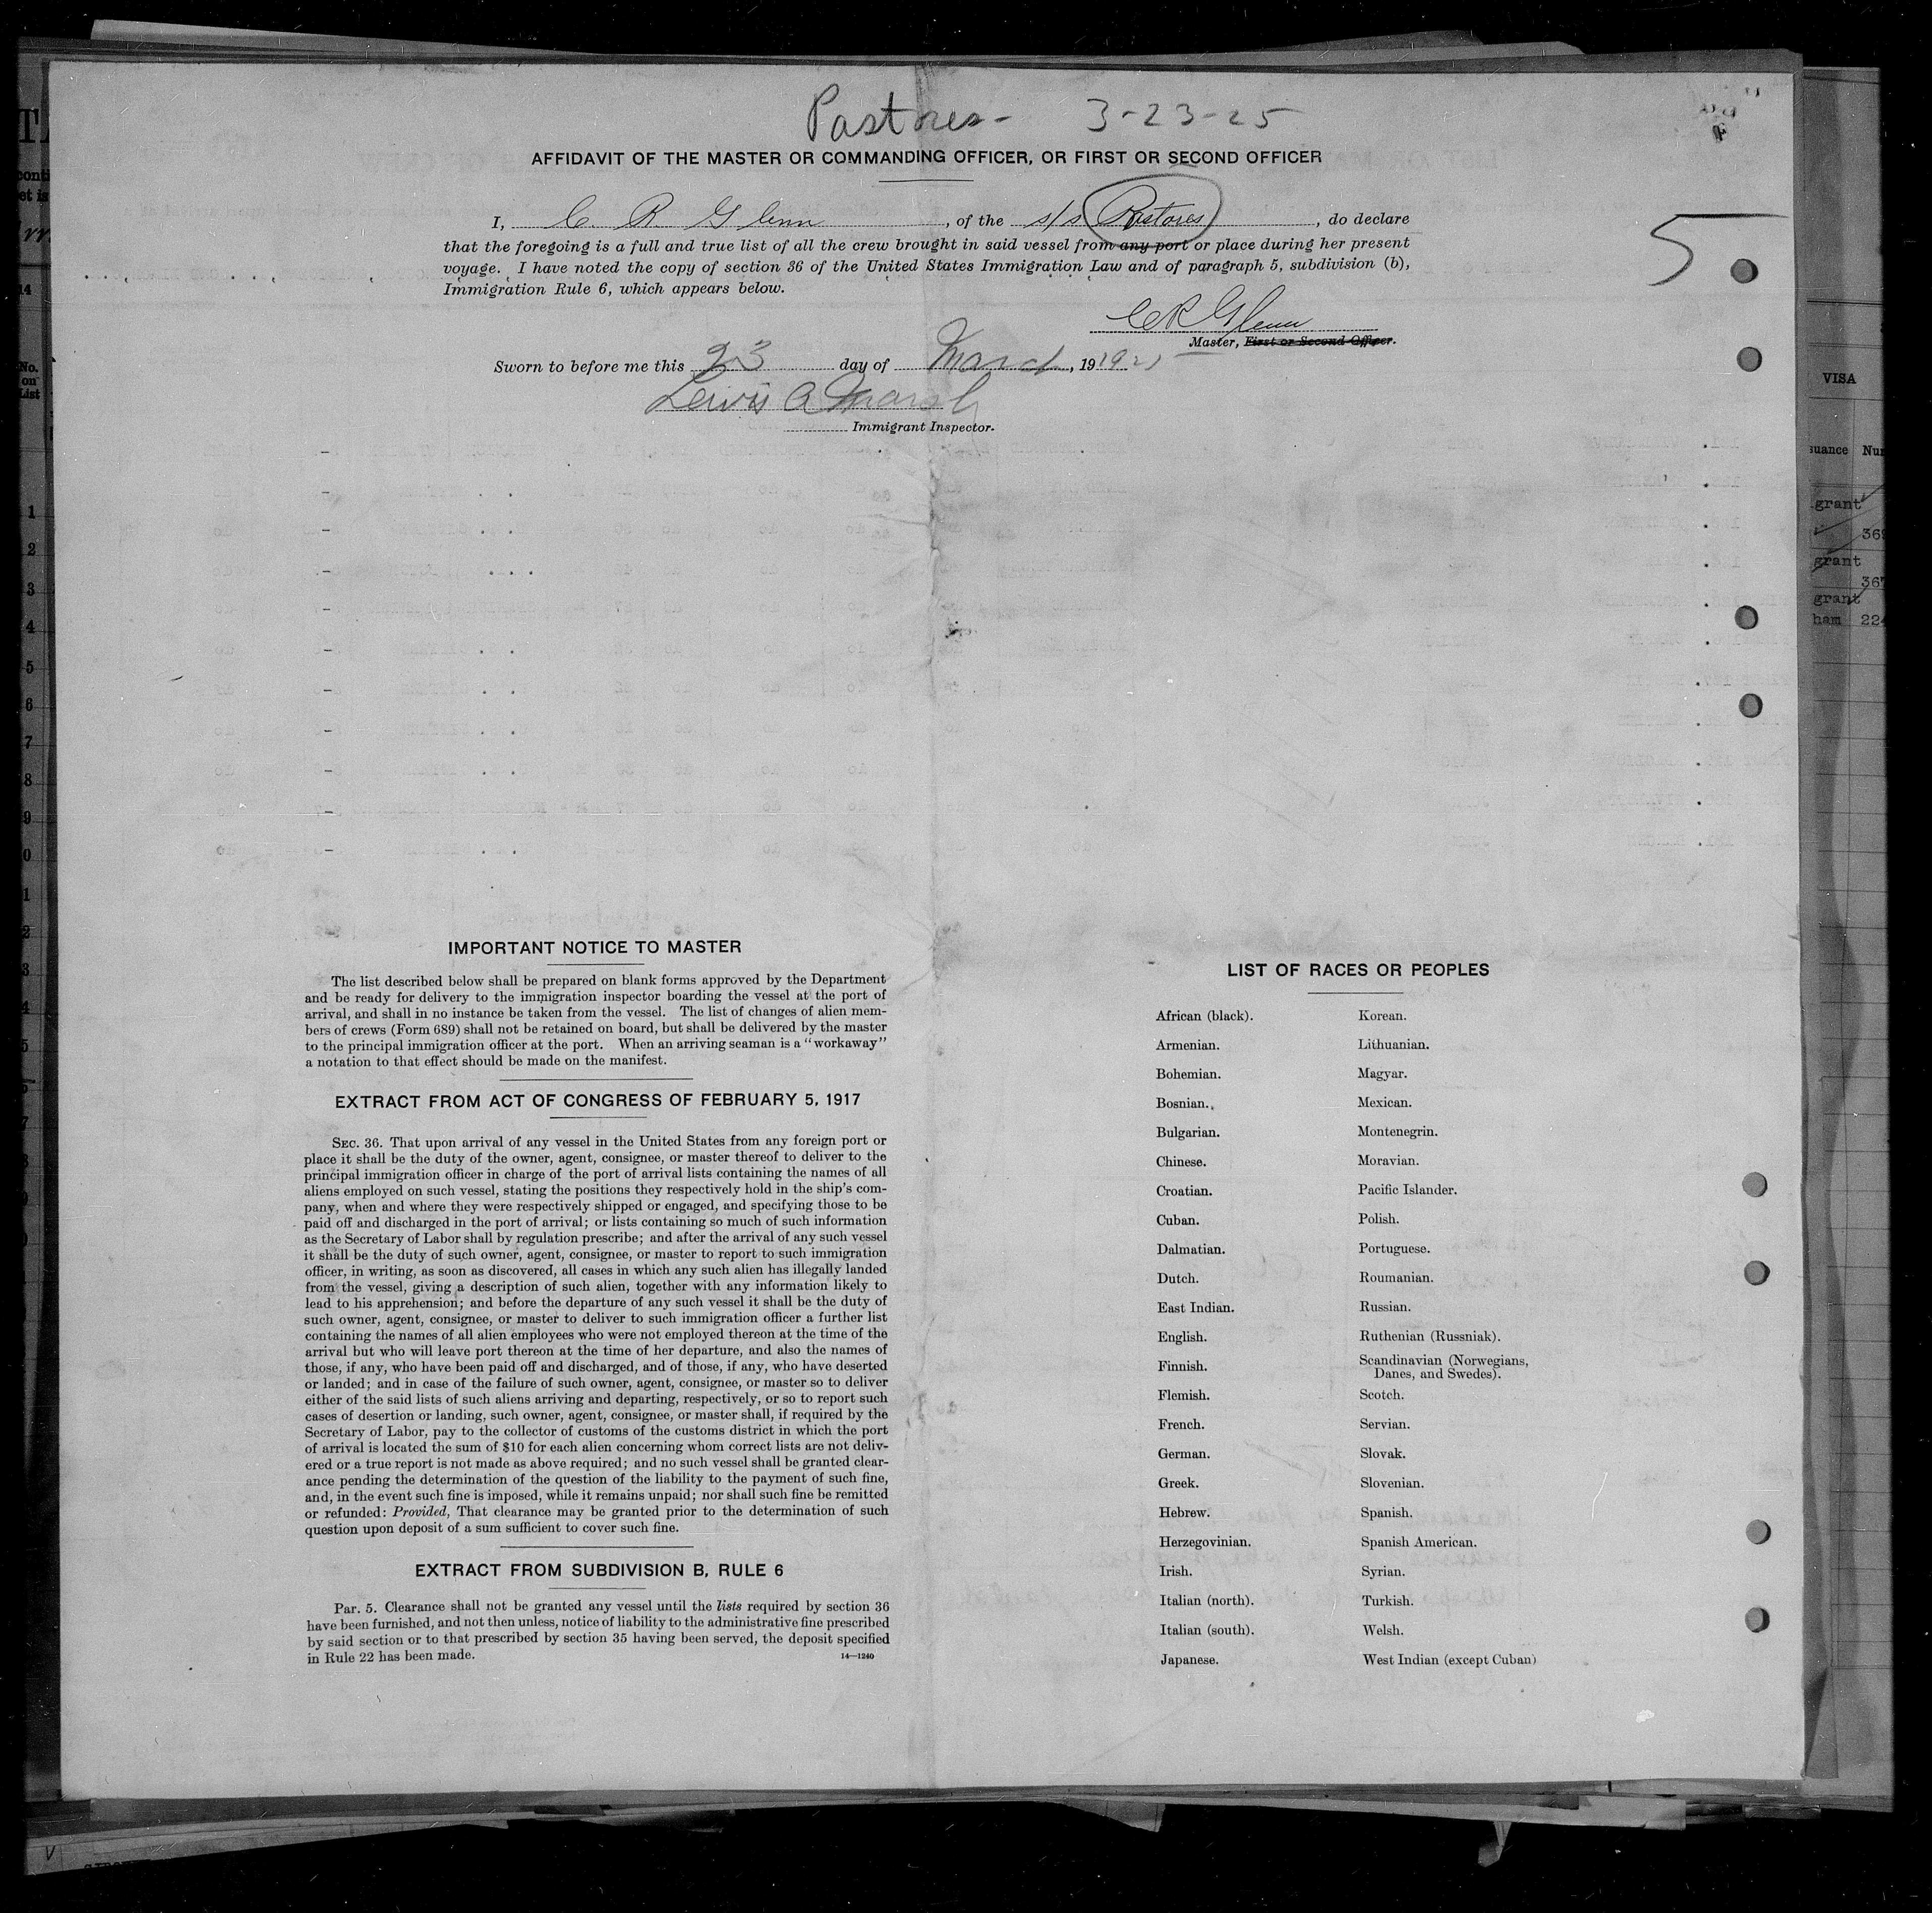 Pastores - 3-23-25
AFFIDAVIT OF THE MASTER OR COMMANDING OFFICER, OR FIRST OR SECOND OFFICER
I, C. R Glenn, of the s/s Pastores, do declare
that the foregoing is a full and true list of all the crew brought in said vessel from any port or place during her present
voyage. I have noted the copy of section 36 of the United States Immigration Law and of paragraph 5, subdivision (b),
Immigration Rule 6, which appears below.
5
CR Glenn
Master, First or Second Officer.
Sworn to before me this 23 day of March, 19
Lewis A Marsh
Immigrant Inspector.
IMPORTANT NOTICE TO MASTER
The list described below shall be prepared on blank forms approved by the Department
and be ready for delivery to the immigration inspector boarding the vessel at the port of
arrival, and shall in no instance be taken from the vessel. The list of changes of alien mem-
bers of crews (Form 689) shall not be retained on board, but shall be delivered by the master
to the principal immigration officer at the port. When an arriving seaman is a "workaway"
a notation to that effect should be made on the manifest.
EXTRACT FROM ACT OF CONGRESS OF FEBRUARY 5, 1917
SEC. 36. That upon arrival of any vessel in the United States from any foreign port or
place it shall be the duty of the owner, agent, consignee, or master thereof to deliver to the
principal immigration officer in charge of the port of arrival lists containing the names of all
aliens employed on such vessel, stating the positions they respectively hold in the ship's com-
pany, when and where they were respectively shipped or engaged, and specifying those to be
paid off and discharged in the port of arrival; or lists containing so much of such information
as the Secretary of Labor shall by regulation prescribe; and after the arrival of any such vessel
it shall be the duty of such owner, agent, consignee, or master to report to such immigration
officer, in writing, as soon as discovered, all cases in which any such alien has illegally landed
from the vessel, giving a description of such alien, together with any information likely to
lead to his apprehension; and before the departure of any such vessel it shall be the duty of
such owner, agent, consignee, or master to deliver to such immigration officer a further list
containing the names of all alien employees who were not employed thereon at the time of the
arrival but who will leave port thereon at the time of her departure, and also the names of
those, if any, who have been paid off and discharged, and of those, if any, who have deserted
or landed; and in case of the failure of such owner, agent, consignee, or master so to deliver
either of the said lists of such aliens arriving and departing, respectively, or so to report such
cases of desertion or landing, such owner, agent, consignee, or master shall, if required by the
Secretary of Labor, pay to the collector of customs of the customs district in which the port
of arrival is located the sum of $10 for each alien concerning whom correct lists are not deliv-
ered or a true report is not made as above required; and no such vessel shall be granted clear-
ance pending the determination of the question of the liability to the payment of such fine,
and, in the event such fine is imposed, while it remains unpaid; nor shall such fine be remitted
or refunded: Provided, That clearance may be granted prior to the determination of such
question upon deposit of a sum sufficient to cover such fine.
EXTRACT FROM SUBDIVISION B, RULE 6
Par. 5. Clearance shall not be granted any vessel until the lists required by section 36
have been furnished, and not then unless, notice of liability to the administrative fine prescribed
by said section or to that prescribed by section 35 having been served, the deposit specified
in Rule 22 has been made.
14—1240
LIST OF RACES OR PEOPLES
African (black). Korean.
Armenian. Lithuanian.
Bohemian. Magyar.
Bosnian. Mexican.
Bulgarian. Montenegrin.
Chinese. Moravian.
Croatian. Pacific Islander.
Cuban. Polish.
Dalmatian. Portuguese.
Dutch. Roumanian.
East Indian. Russian.
English. Ruthenian (Russniak).
Finnish. Scandinavian (Norwegians,
Danes, and Swedes).
Flemish. Scotch.
French. Servian.
German. Slovak.
Greek. Slovenian.
Hebrew. Spanish.
Herzegovinian. Spanish American.
Irish. Syrian.
Italian (north). Turkish.
Italian (south). Welsh.
Japanese. West Indian (except Cuban)
No.
on
List
VISA
grant
grant
grant
ham 224